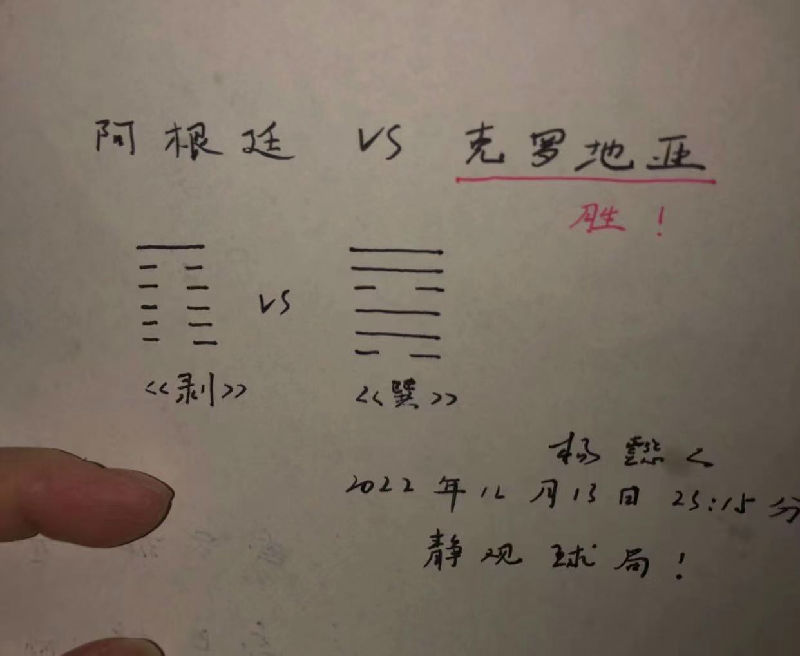 阿根廷 VS 克罗地亚
胜！
VS
《剥》 《巽》
杨
2022年12月13日 23:15分
静观球局！